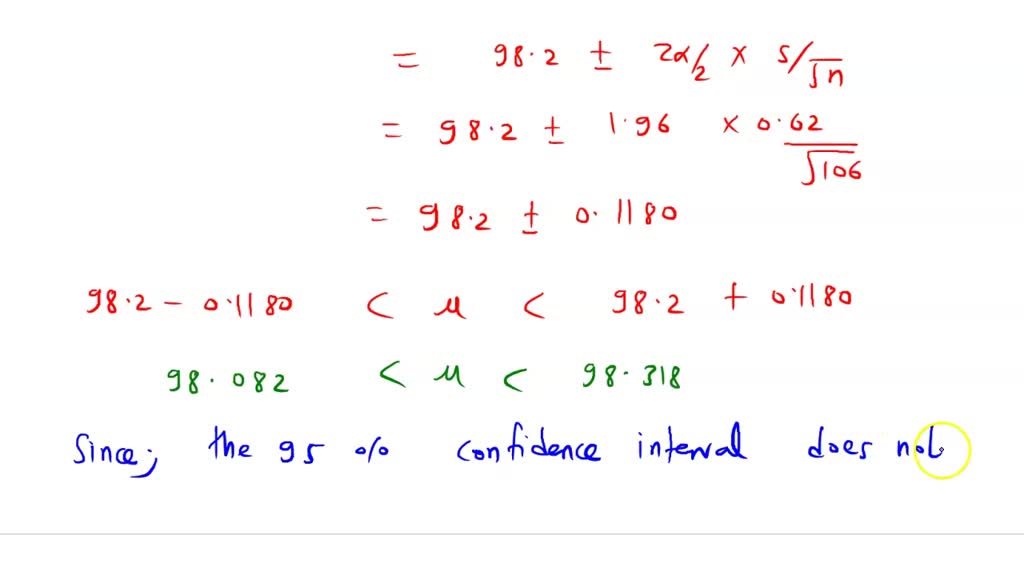 = 98.2 ± Zα/2 × s/√n
= 98.2 ± 1.96 × 0.62/√106
= 98.2 ± 0.1180
98.2 - 0.1180 < μ < 98.2 + 0.1180
98.082 < μ < 98.318
Since; the 95 % confidence interval does not